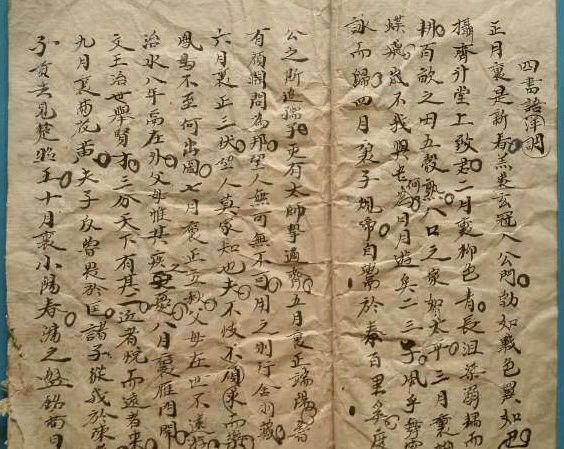 四書語洋調
正月裏是新春羔裘玄冠入公門勃如戰色翼如也
攝齊升堂上致君二月裏柳色青長沮桀溺耦而
耕百畝之田五穀熟八口之家如太平三月裏
蝶飛歲不我與老為何日月逝矣二三子風乎舞雩
詠而歸四月裏子規啼自鬻於秦百里奚度
公之所追孺子更有太師摯適齊五月裏正端陽書
有顏淵問為邦聖人無可無不可用之則行舍則藏
六月裏正三伏聖人莫我知也夫不忮不求而樂
鳳鳥不至何出圖七月裏正立秋父母在世不遠遊
治水八年禹在外父母惟其疾憂八月裏雁門開
文王治世舉賢才三分天下有其二近者悅而遠者來
九月裏菊花黃夫子反魯畏於匡諸子從我於陳
子貢去見楚昭王十月裏小陽春湯之盤銘苟日